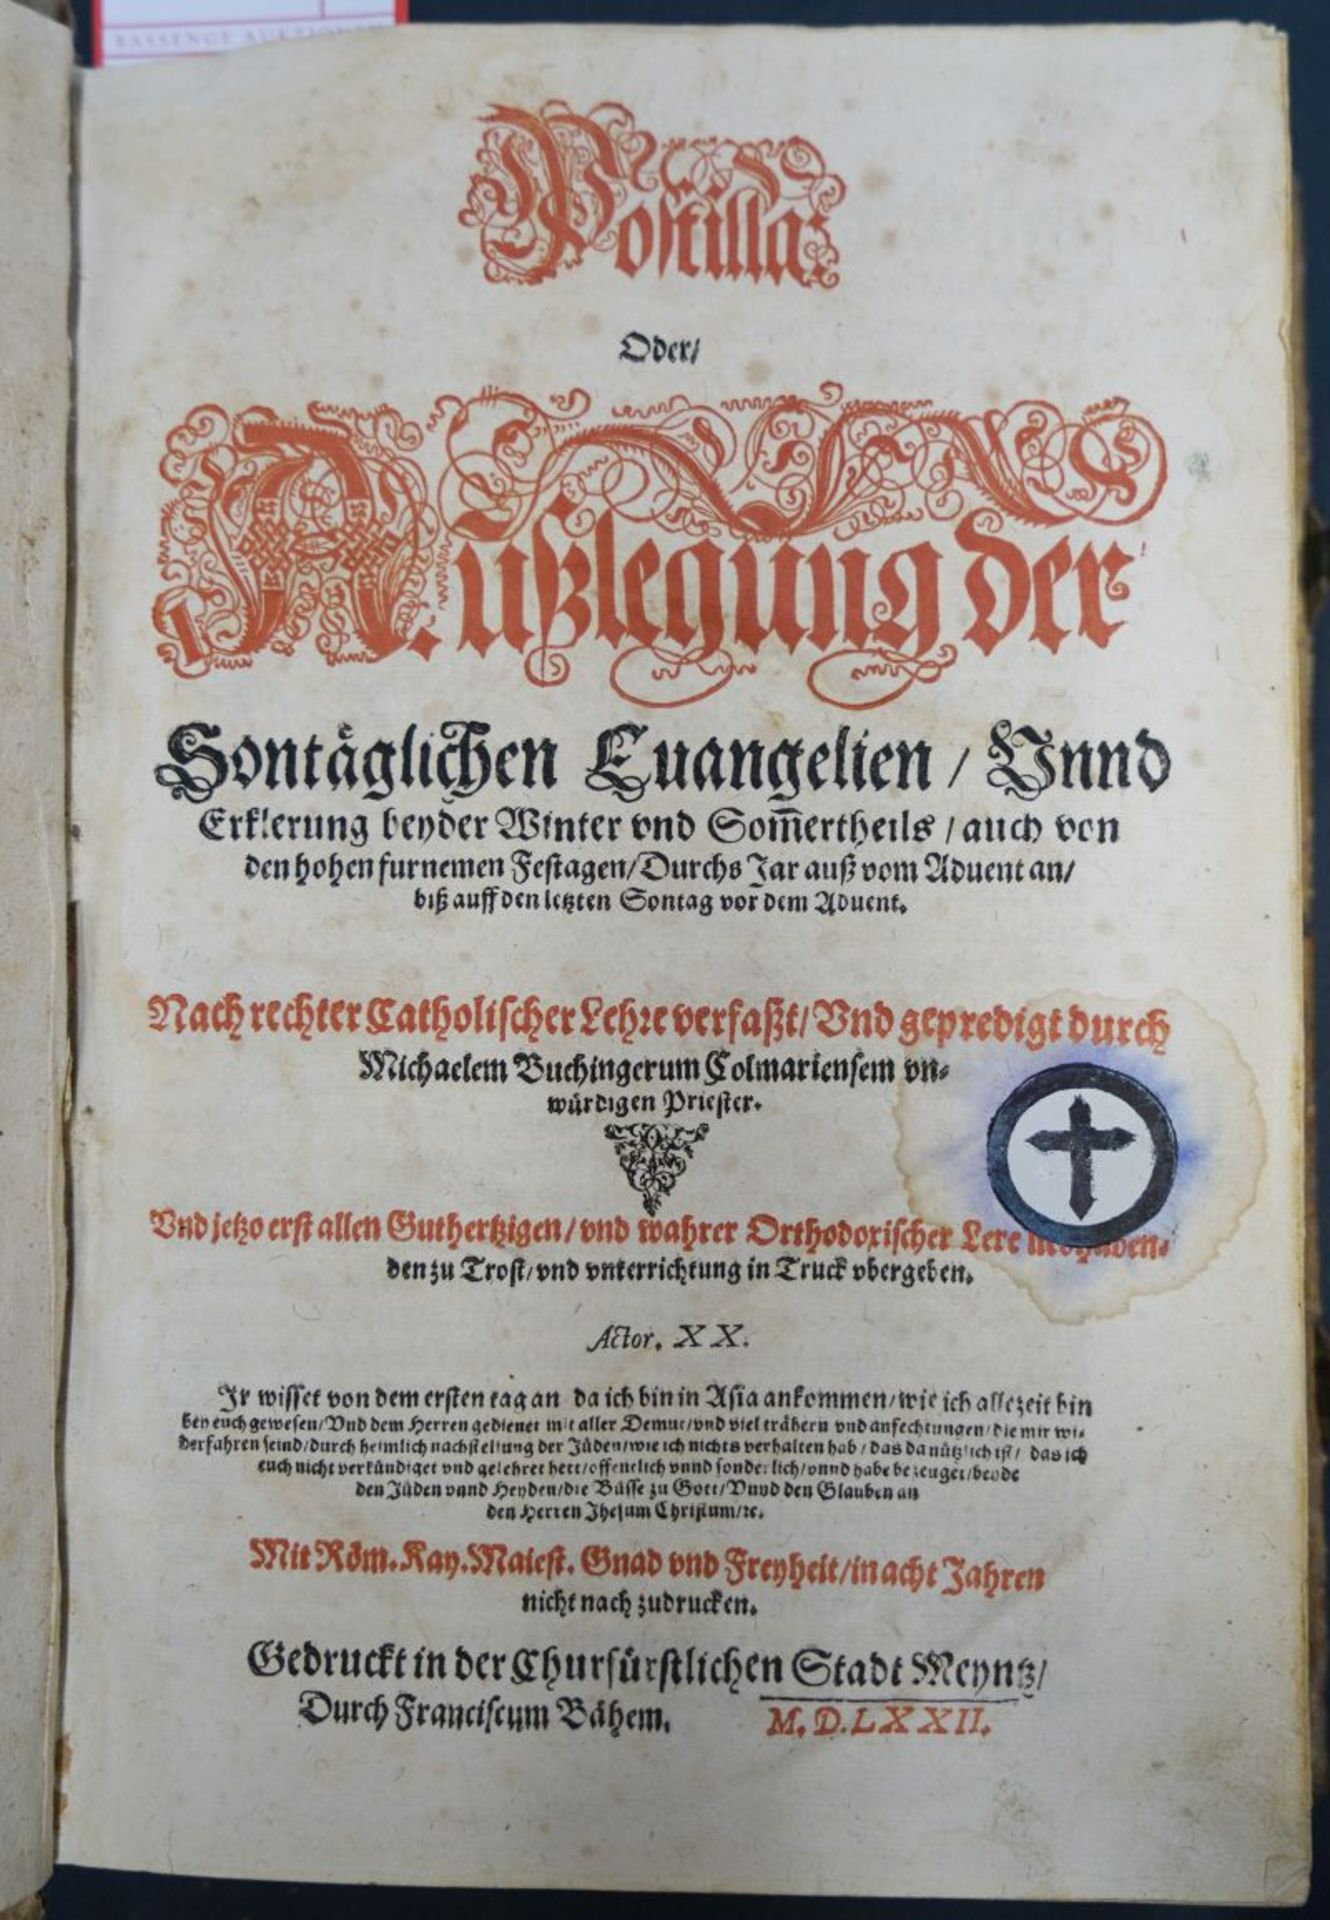 BASSENGE AUKTIONEN
Postilla:
Oder/
Außlegung der
Sontäglichen Euangelien / Vnnd
Erklerung beyder Winter vnd Som̄ertheils / auch von
den hohen furnemen Festagen/ Durchs Jar auß vom Aduent an/
biß auff den letzten Sontag vor dem Aduent.
Nach rechter Catholischer Lehre verfaßt/ Vnd gepredigt durch
Michaelem Buchingerum Colmariensem vn-
würdigen Priester.
Vnd jetzo erst allen Guthertzigen/ vnd wahrer Orthodoxischer Lere
den zu Trost/ vnd vnterrichtung in Truck vbergeben.
Actor. XX.
Ir wisset von dem ersten tag an da ich bin in Asia ankommen/ wie ich allezeit bin
bey euch gewesen/ Vnd dem Herren gedienet mit aller Demut/ vnd viel trähern vnd anfechtungen/ die mir wi-
derfahren seind/ durch heimlich nachstellung der Jüden/ wie ich nichts verhalten hab/ das da nützlich ist/ das ich
euch nicht verkündiget vnd gelehret hett/ offentlich vnnd sonderlich/ vnnd habe bezeuget/ beyde
den Jüden vnnd Heyden/ die Büsse zu Gott/ Vnnd den Glauben an
den Herren Jhesum Christum/ ꝛc.
Mit Röm. Kay. Maiest. Gnad vnd Freyheit/ in acht Jahren
nicht nach zudrucken.
Gedruckt in der Churfürstlichen Stadt Meyntz/
Durch Franciscum Bähem. M. D. LXXII.